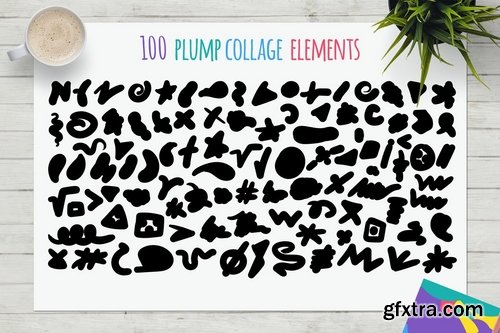 100 PLUMP COLLAGE ELEMENTS
gfxtra.com